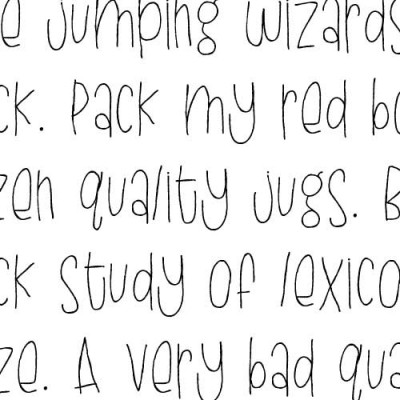 e jumping wizards
ck. Pack my red bo
zen quality jugs. B
ck study of lexico
ze. A very bad qua